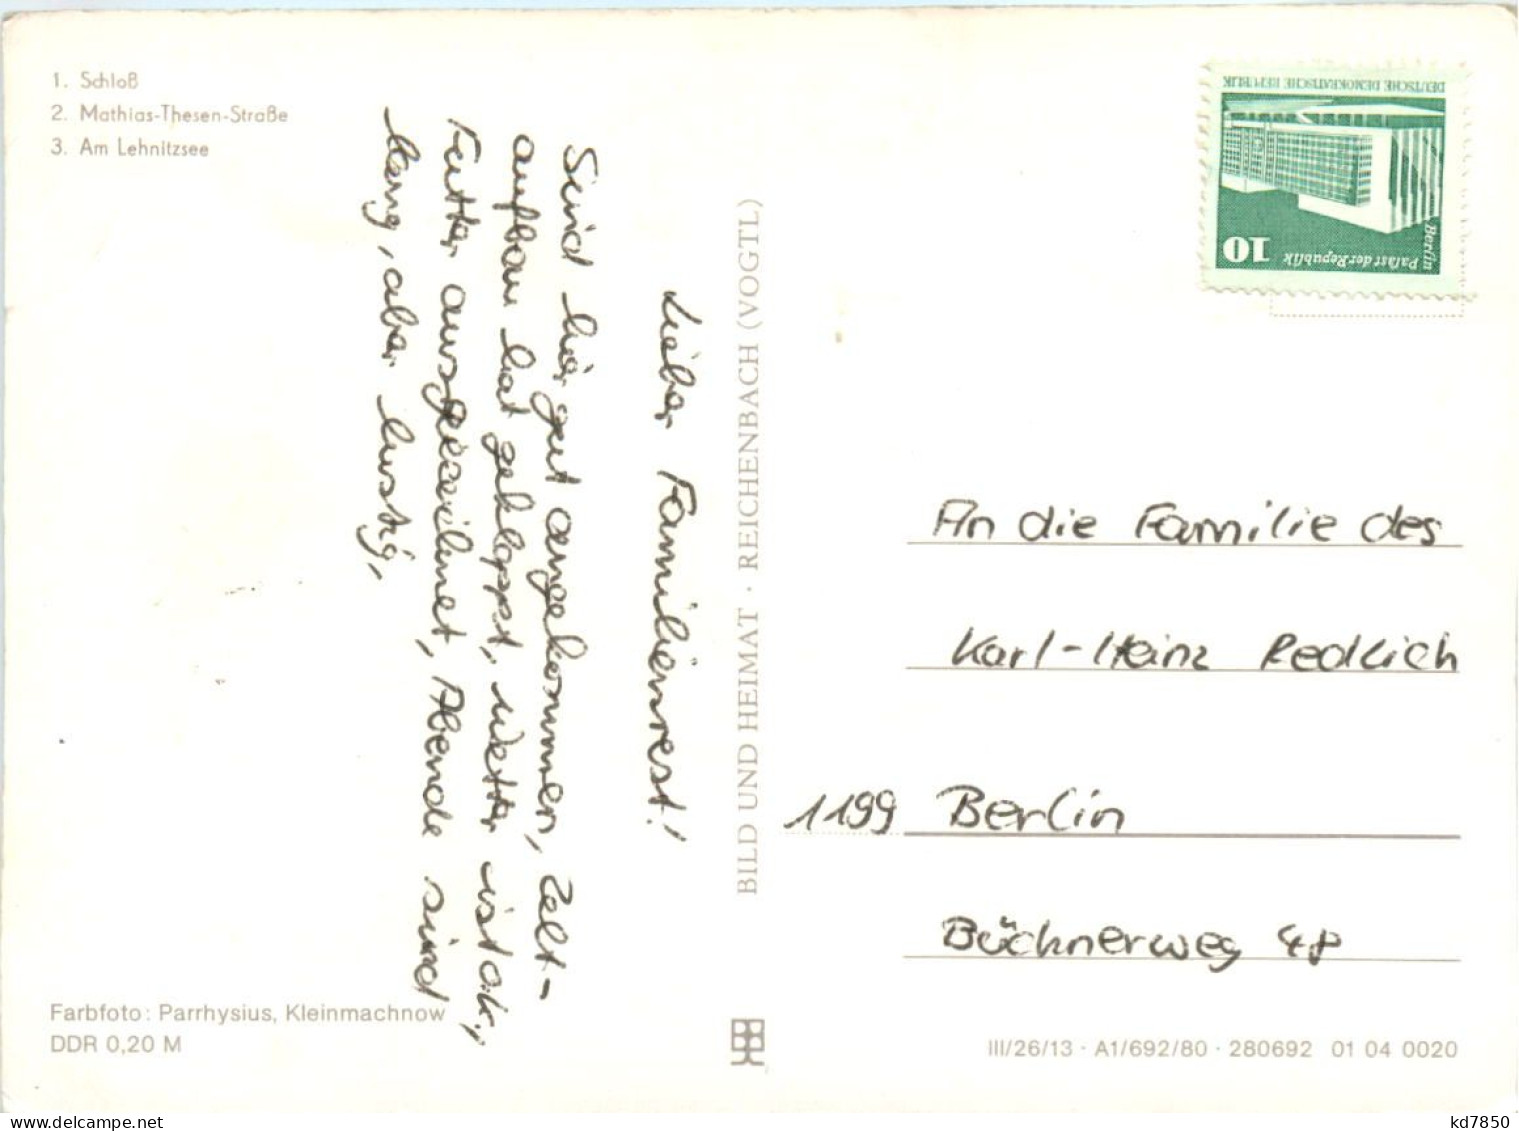 1. Schloß
2. Mathias-Thesen-Straße
3. Am Lehnitzsee
Lieber Familienrest!
Sind hier gut angekommen, Zelt-
aufbau hat geklappt, Wetter ist o.k.,
Futter ausgezeichnet, Abende sind
lang, aber lustig,
Farbfoto: Parrhysius, Kleinmachnow
DDR 0,20 M
BILD UND HEIMAT · REICHENBACH (VOGTL)
DEUTSCHE DEMOKRATISCHE REPUBLIK
Berlin
Palast der Republik
10
An die Familie des
Karl-Heinz Redlich
1199 Berlin
Büchnerweg
III/26/13 · A1/692/80 · 280692 01 04 0020
delcampe.net
kd7850